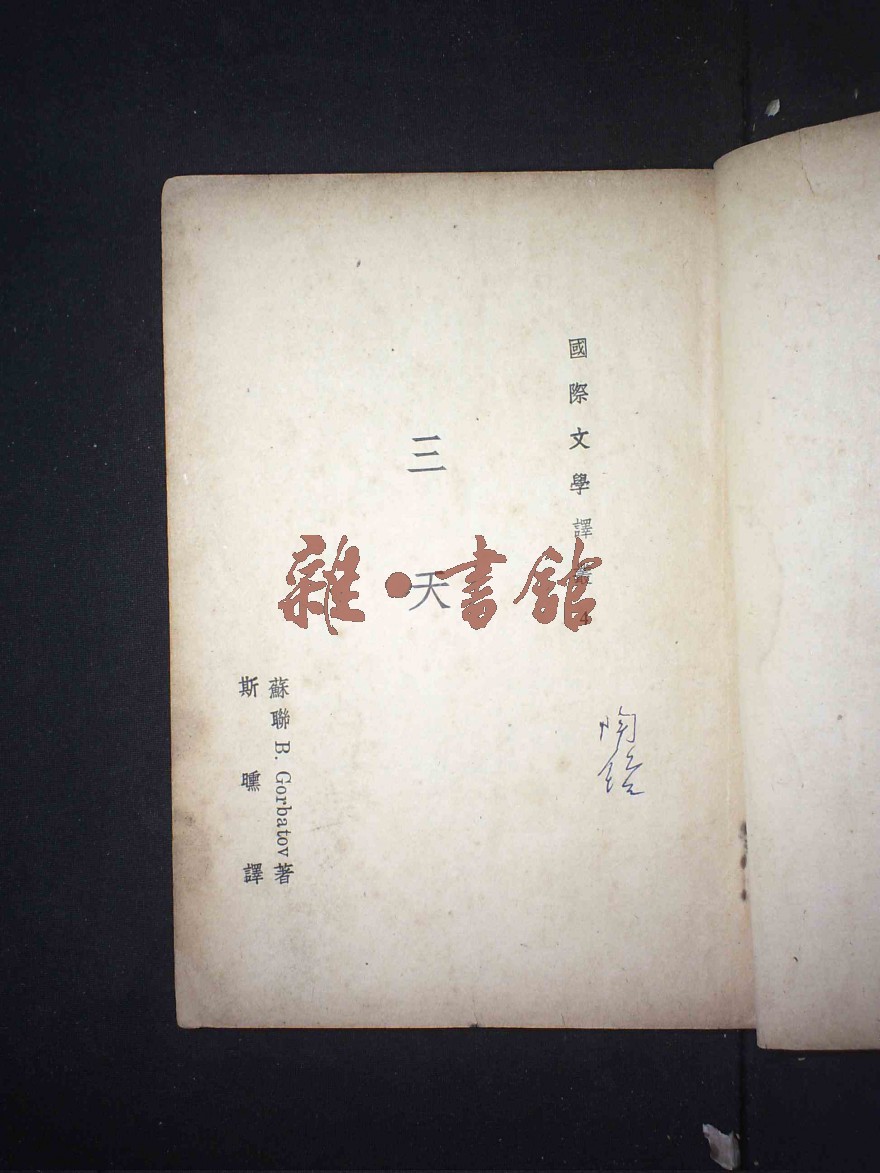 國際文學譯叢 4
三天
蘇聯 B. Gorbatov 著
斯曛譯
雜·書館